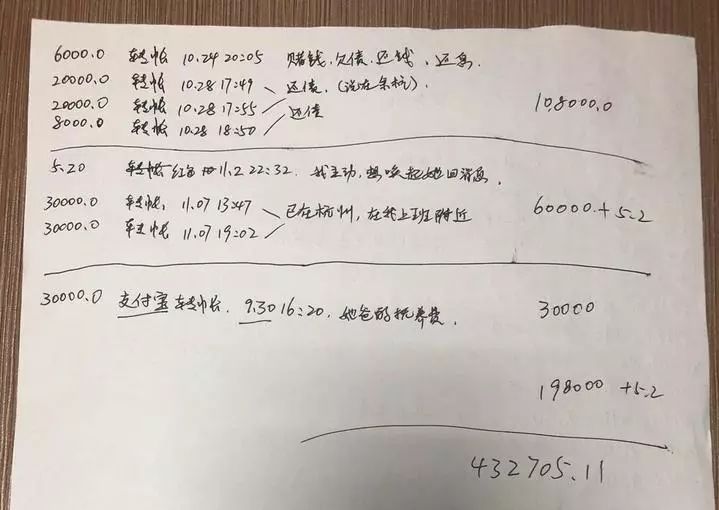 6000.0 转帐 10.24 20:05 赌钱.欠债.还钱.还息.
20000.0 转帐 10.28 17:49 还债.(说在余杭).
20000.0 转帐 10.28 17:55 还债 108000.0
8000.0 转帐 10.28 18:50
5.20 红包 11.2 22:32. 我主动,想唤起她回消息.
30000.0 转帐. 11.07 13:47 已在杭州,在我上班附近 60000.+5.2
30000.0 转帐 11.07 19:02
30000.0 支付宝转帐. 9.30 16:20. 她爸的抚养费. 30000
198000 +5.2
432705.11